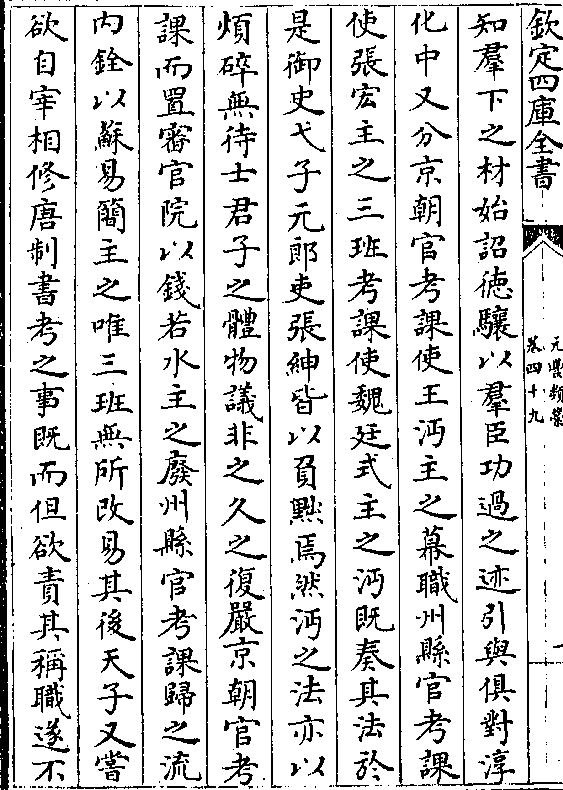 欽定四庫全書
元豐類藁
卷四十九
知羣下之材始詔徳驤以羣臣功過之迹引與俱對淳
化中又分京朝官考課使王沔主之幕職州縣官考課
使張宏主之三班考課使魏廷式主之沔既奏其法於
是御史弋子元郎吏張紳皆以負黜焉然沔之法亦以
煩碎無待士君子之體物議非之久之復嚴京朝官考
課而置審官院以錢若水主之廢州縣官考課歸之流
内銓以蘇易簡主之唯三班無所改易其後天子又嘗
欲自宰相修唐制書考之事既而但欲責其稱職遂不